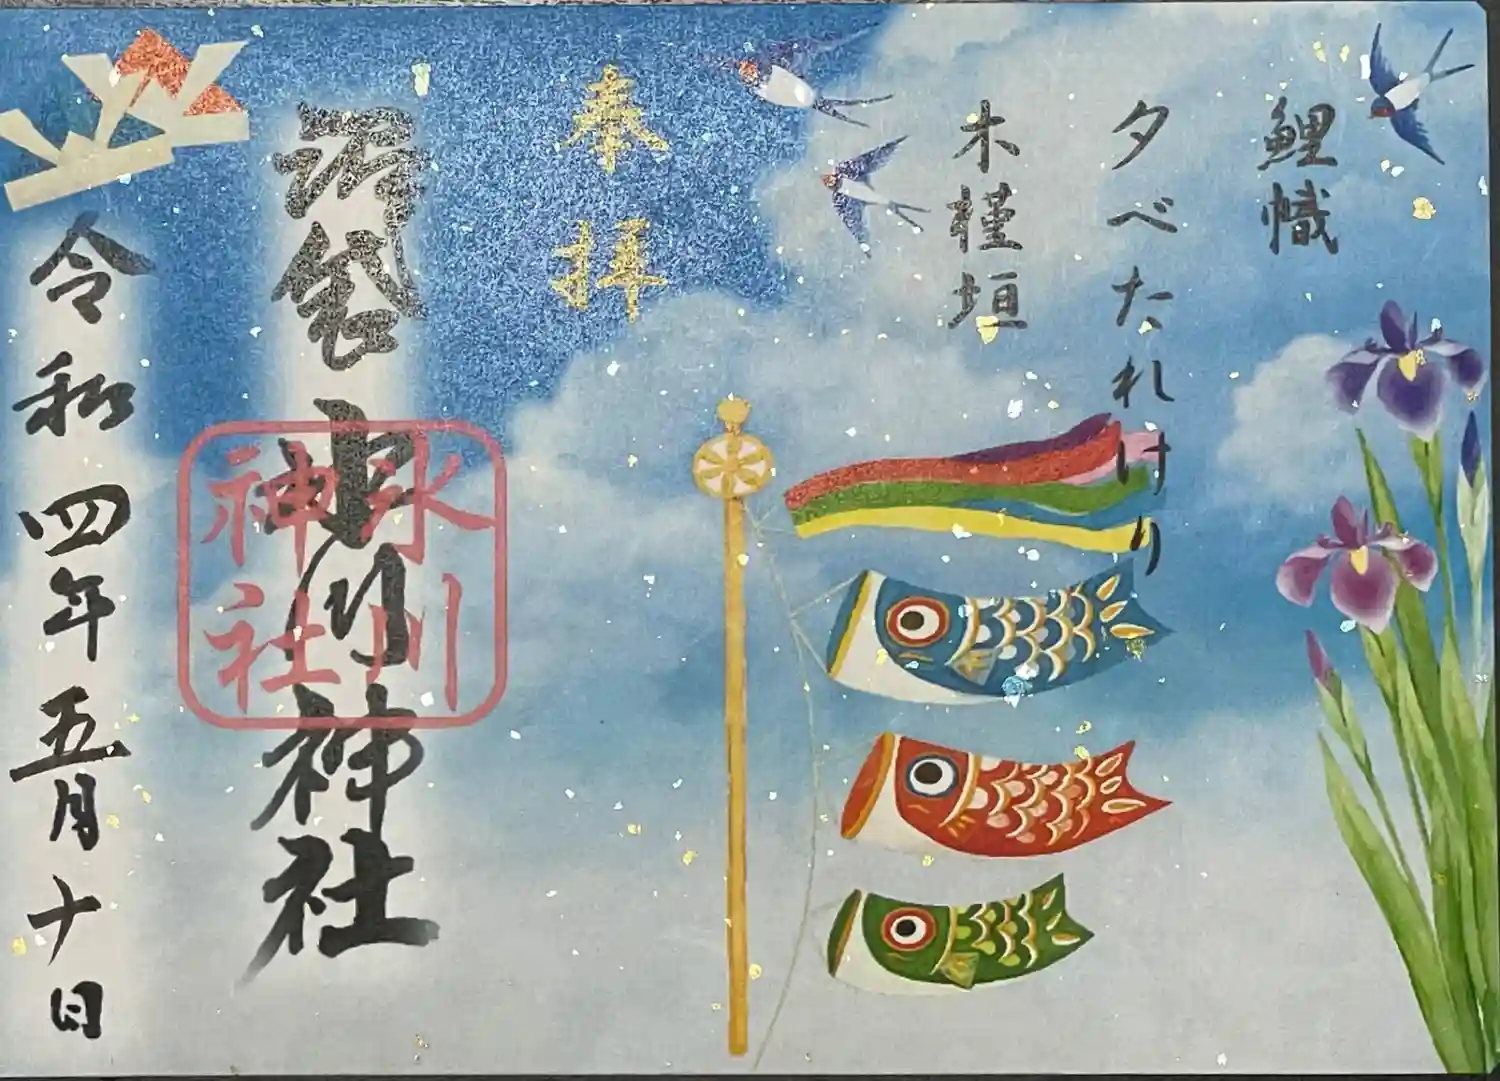 鯉幟
夕べたれけり
木槿垣
奉拝
沼袋氷川神社
氷川
神社
令和四年五月十日